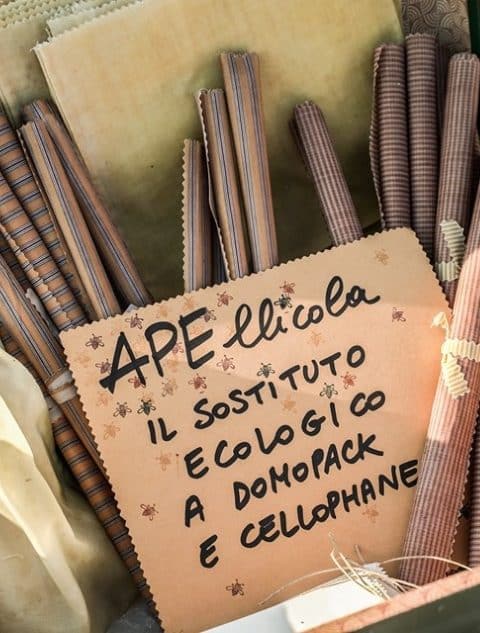 APEllicola
IL SOSTITUTO
ECOLOGICO
A DOMOPACK
E CELLOPHANE